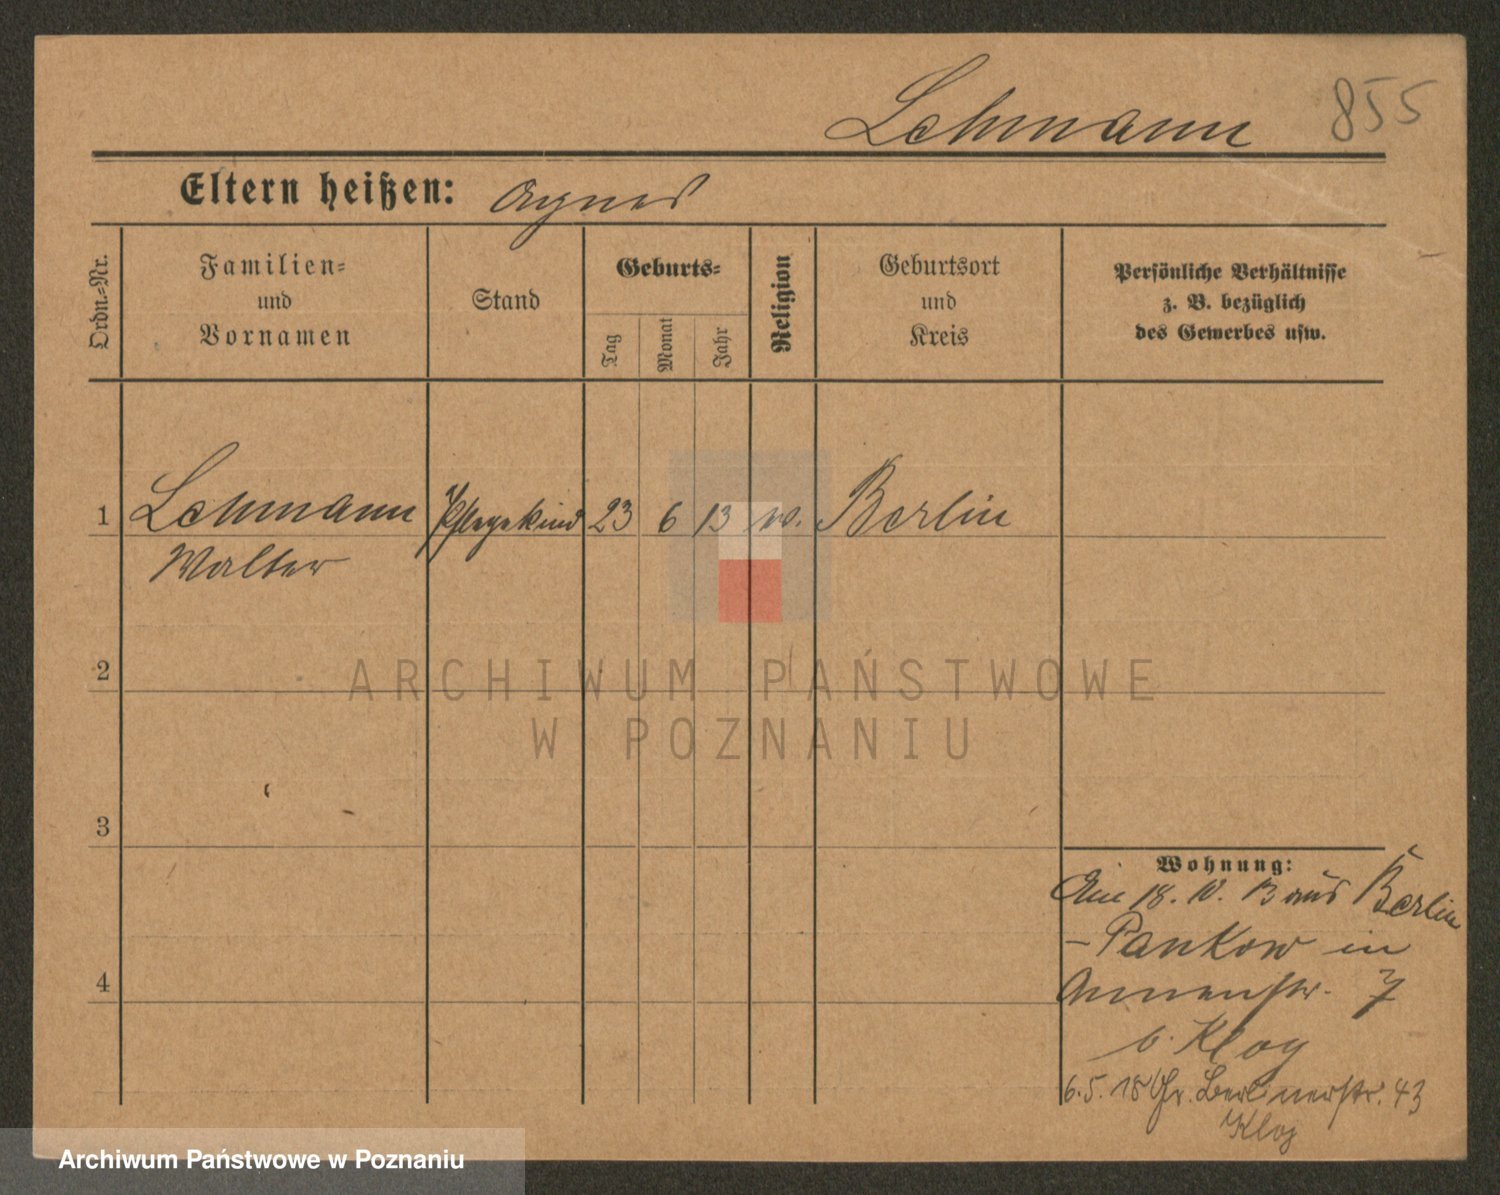 Lehmann 855
Eltern heißen: Agnes
Ordn.=Nr.
Familien=
und
Vornamen
Stand
Geburts=
Tag
Monat
Jahr
Religion
Geburtsort
und
Kreis
Persönliche Verhältnisse
z. B. bezüglich
des Gewerbes usw.
1 Lehmann Pflegekind 23 6 13 Berlin
Walter
2
ARCHIWUM PAŃSTWOWE
W POZNANIU
3
Wohnung:
Am 18. 10. 13 aus Berlin
- Pankow in
Annenstr. 7
b. Klog
4
6.5.18 Gr. Berlinerstr. 43
Klog
Archiwum Państwowe w Poznaniu